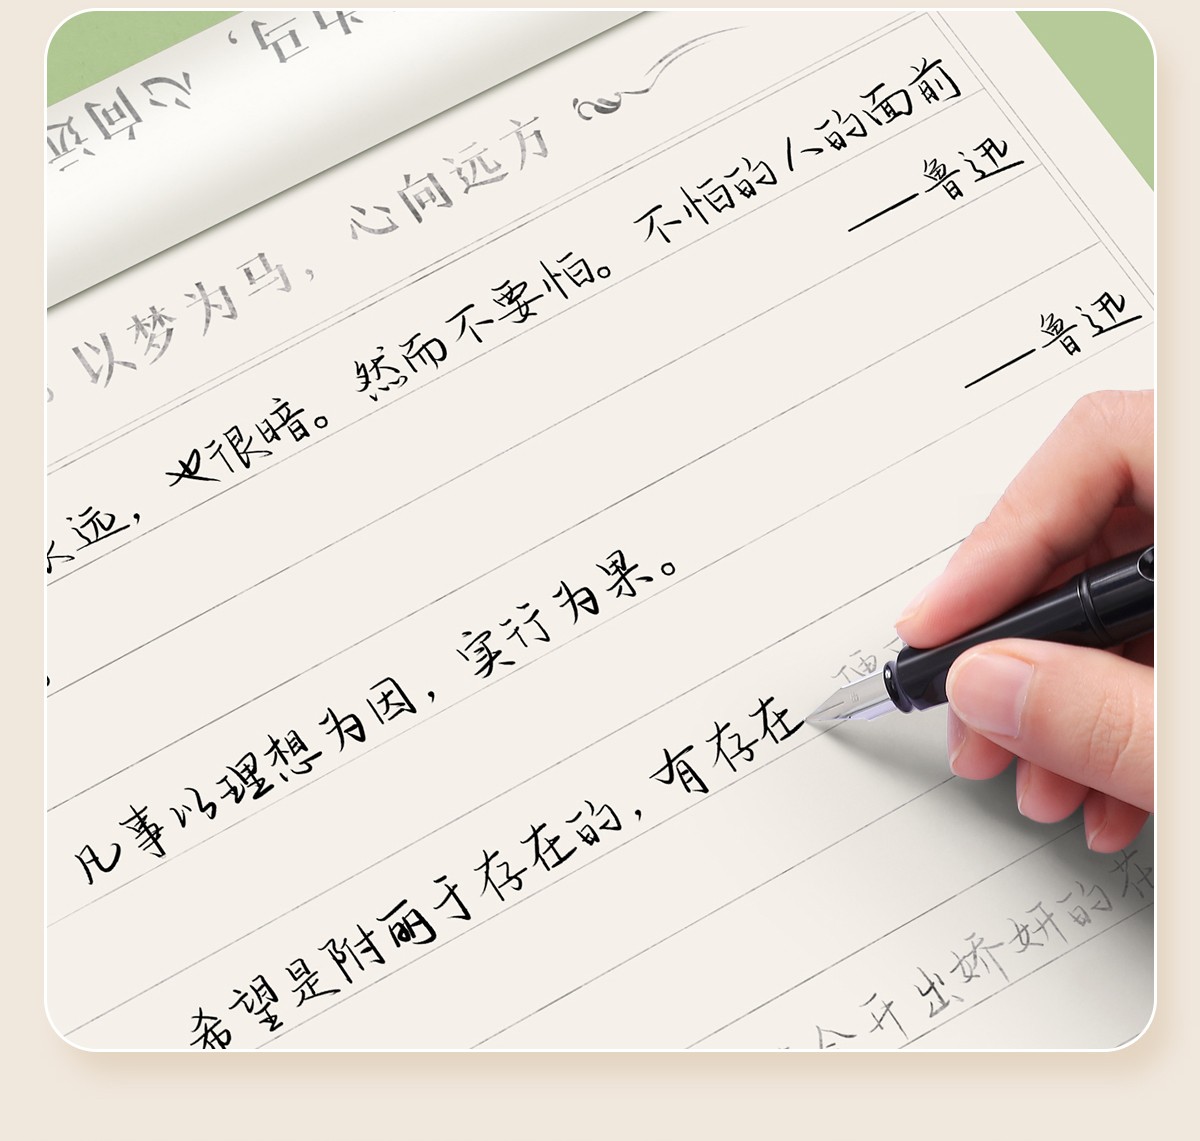 心向远
为马，
以梦为马，心向远方
远，也很暗。然而不要怕。不怕的人的面前
——鲁迅
——鲁迅
凡事以理想为因，实行为果。
希望是附丽于存在的，有存在
开出娇妍的花